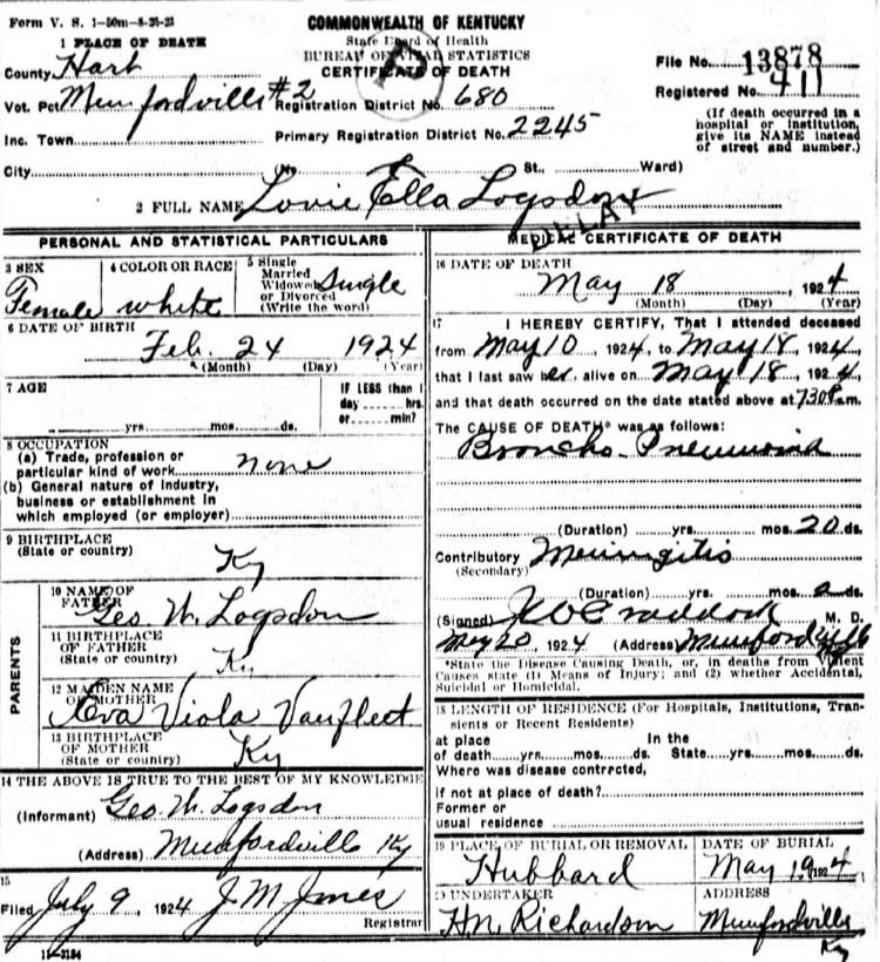 Form V. S. 1-50m-8-23-23
COMMONWEALTH OF KENTUCKY
State Board of Health
BUREAU OF VITAL STATISTICS
CERTIFICATE OF DEATH
1 PLACE OF DEATH
County Hart
File No. 13878
Registered No. 411
Vot. Pct Munfordville #2 Registration District No. 680
Inc. Town Primary Registration District No. 2245
(If death occurred in a hospital or institution, give its NAME instead of street and number.)
City (No St., Ward)
2 FULL NAME Lovie Ella Logsdon
DELAY
PERSONAL AND STATISTICAL PARTICULARS
3 SEX Female
4 COLOR OR RACE white
5 Single Married Widowed or Divorced (Write the word) Single
6 DATE OF BIRTH
Feb. 24 1924
(Month) (Day) (Year)
7 AGE
yrs. mos. ds.
IF LESS than 1 day hrs. or min?
8 OCCUPATION
(a) Trade, profession or particular kind of work none
(b) General nature of industry, business or establishment in which employed (or employer)
9 BIRTHPLACE (State or country)
Ky
PARENTS
10 NAME OF FATHER Geo. W. Logsdon
11 BIRTHPLACE OF FATHER (State or country) Ky
12 MAIDEN NAME OF MOTHER Eva Viola Vanfleet
13 BIRTHPLACE OF MOTHER (State or country) Ky
14 THE ABOVE IS TRUE TO THE BEST OF MY KNOWLEDGE
(Informant) Geo. W. Logsdon
(Address) Munfordville Ky
15
Filed July 9, 1924 J. M. Jones
Registrar
11-3184
MEDICAL CERTIFICATE OF DEATH
16 DATE OF DEATH
May 18, 1924
(Month) (Day) (Year)
17 I HEREBY CERTIFY, That I attended deceased
from May 10, 1924, to May 18, 1924,
that I last saw her alive on May 18, 1924,
and that death occurred on the date stated above at 730 P.m.
The CAUSE OF DEATH* was as follows:
Broncho-Pneumonia
(Duration) yrs. mos. 20 ds.
Contributory (Secondary) Meningitis
(Duration) yrs. mos. 2 ds.
(Signed) Craddock M. D.
May 20, 1924 (Address) Munfordville Ky
*State the Disease Causing Death, or, in deaths from Violent
Causes state (1) Means of Injury; and (2) whether Accidental,
Suicidal or Homicidal.
18 LENGTH OF RESIDENCE (For Hospitals, Institutions, Tran-
sients or Recent Residents)
at place of death yrs. mos. ds. In the State yrs. mos. ds.
Where was disease contrected,
if not at place of death?
Former or
usual residence
19 PLACE OF BURIAL OR REMOVAL Hubbard
DATE OF BURIAL May 19 1924
UNDERTAKER H.N. Richardson
ADDRESS Munfordville Ky